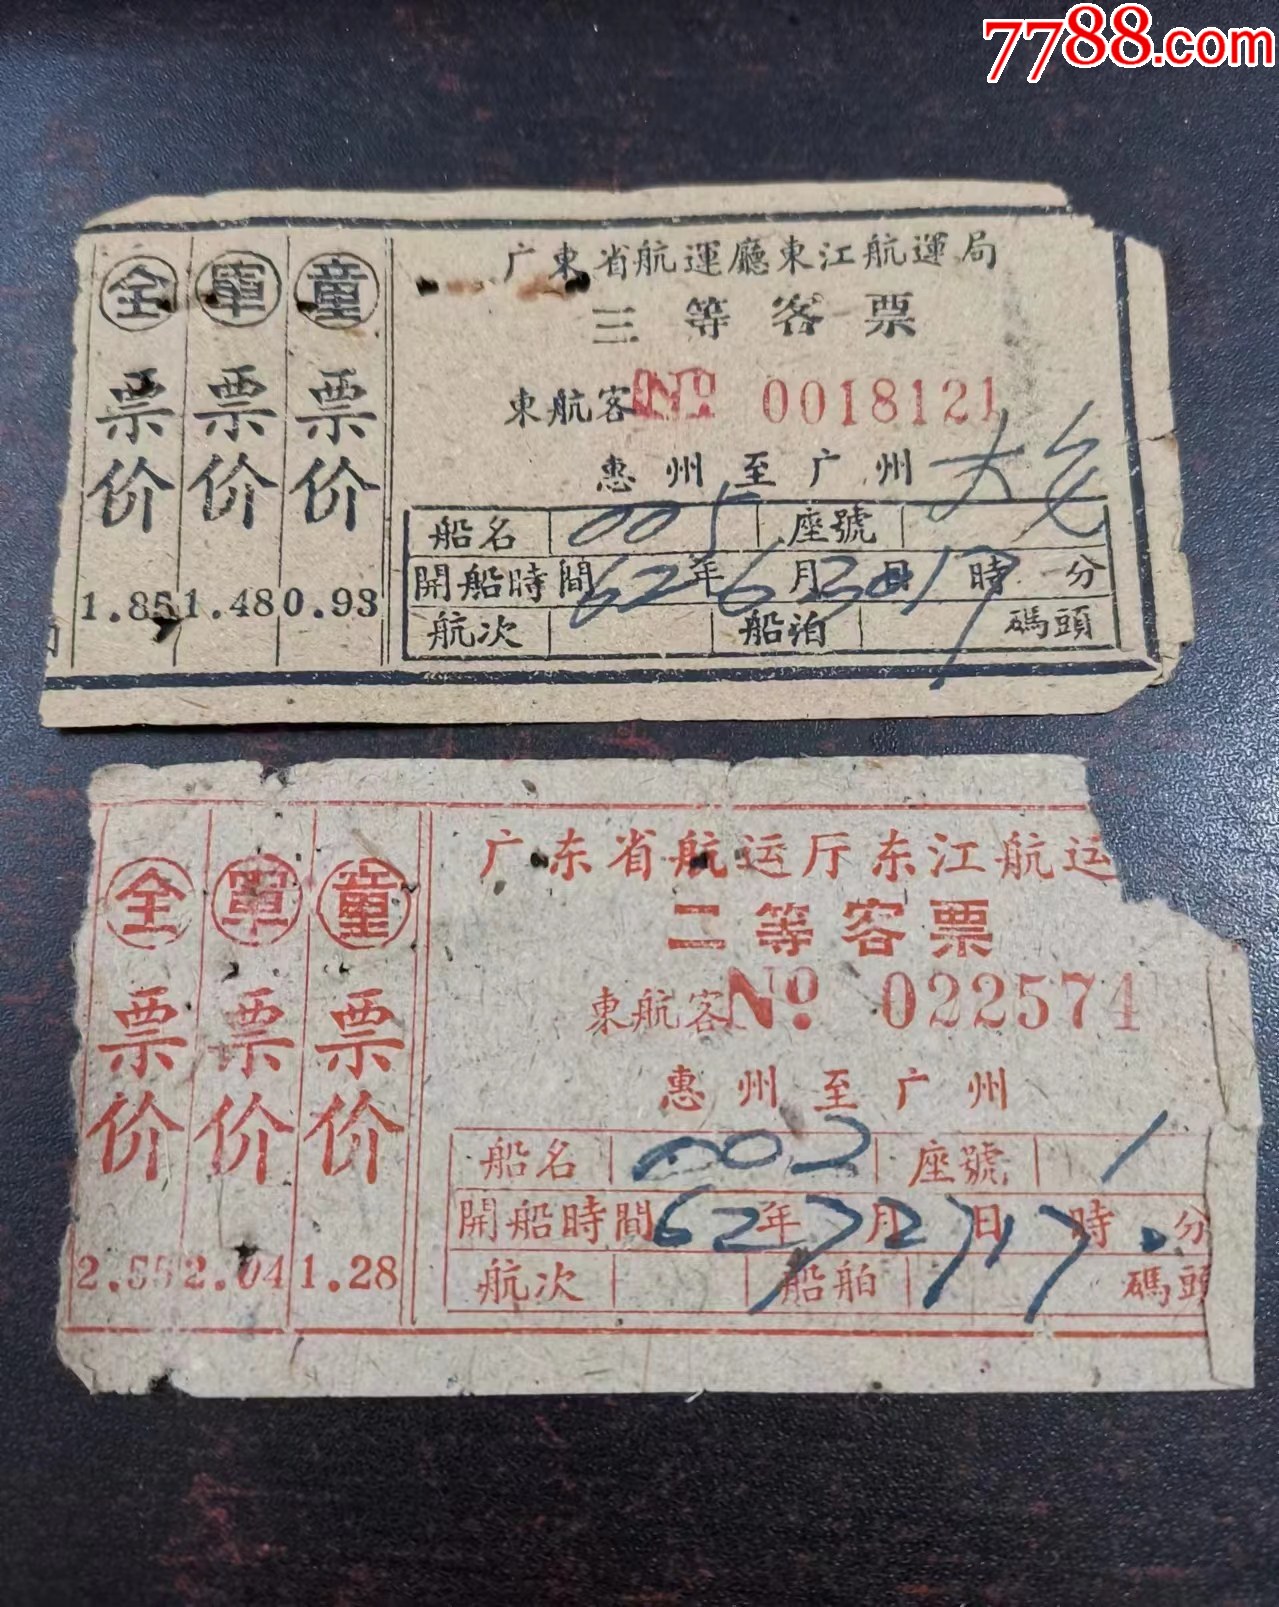 7788.com
广東省航運廳東江航運局
三等客票
東航客 № 0018121
惠州至广州
全票价 軍票价 童票价
1.85 1.48 0.93
船名 005 座號
開船時間 62年6月30日17時 分
航次 船泊 碼頭
广东省航运厅东江航运
二等客票
東航客 № 022574
惠州至广州
全票价 軍票价 童票价
2.55 2.04 1.28
船名 002 座號 1
開船時間 62年7月27日17時 分
航次 船舶 碼頭